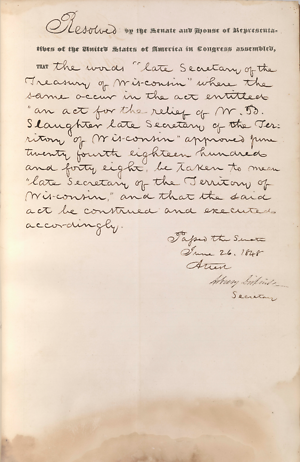 Resolved by the Senate and House of Representa-
tives of the United States of America in Congress assembled,
THAT the words "late Secretary of the
Treasury of Wisconsin" where the
same occur in the act entitled
"an act for the relief of W. B.
Slaughter late Secretary of the Ter-
ritory of Wisconsin" approved June
twenty fourth eighteen hundred
and forty eight, be taken to mean
"late Secretary of the Territory of
Wisconsin," and that the said
act be construed and executed
accordingly.
Passed the Senate
June 26, 1848
Attest
Secretary